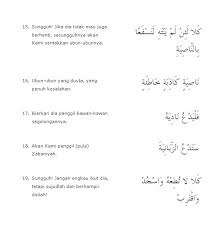 15. Sungguh! Jika dia tidak mau juga
berhenti, sesungguhnya akan
Kami sentakkan ubun-ubunnya.
كَلَّا لَئِنْ لَمْ يَنْتَهِ لَنَسْفَعًا
بِالنَّاصِيَةِ
16. Ubun-ubun yang dusta, yang
penuh kesalahan.
نَاصِيَةٍ كَاذِبَةٍ خَاطِئَةٍ
17. Biarkan dia panggil kawan-kawan
segolongannya.
فَلْيَدْعُ نَادِيَهُ
18. Akan Kami panggil (pula)
Zabaniyah.
سَنَدْعُ الزَّبَانِيَةَ
19. Sungguh! Jangan engkau ikut dia,
tetapi sujudlah dan berhampir
dirilah!
كَلَّا لَا تُطِعْهُ وَاسْجُدْ
وَاقْتَرِبْ